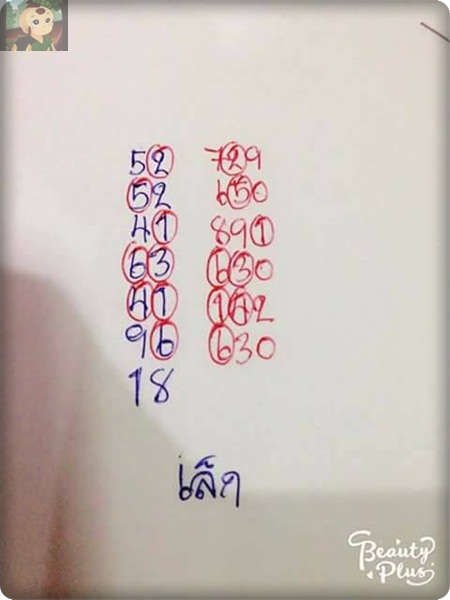 52 729
52 650
41 891
63 630
41 142
96 630
18
เล็ก
Beauty
Plus